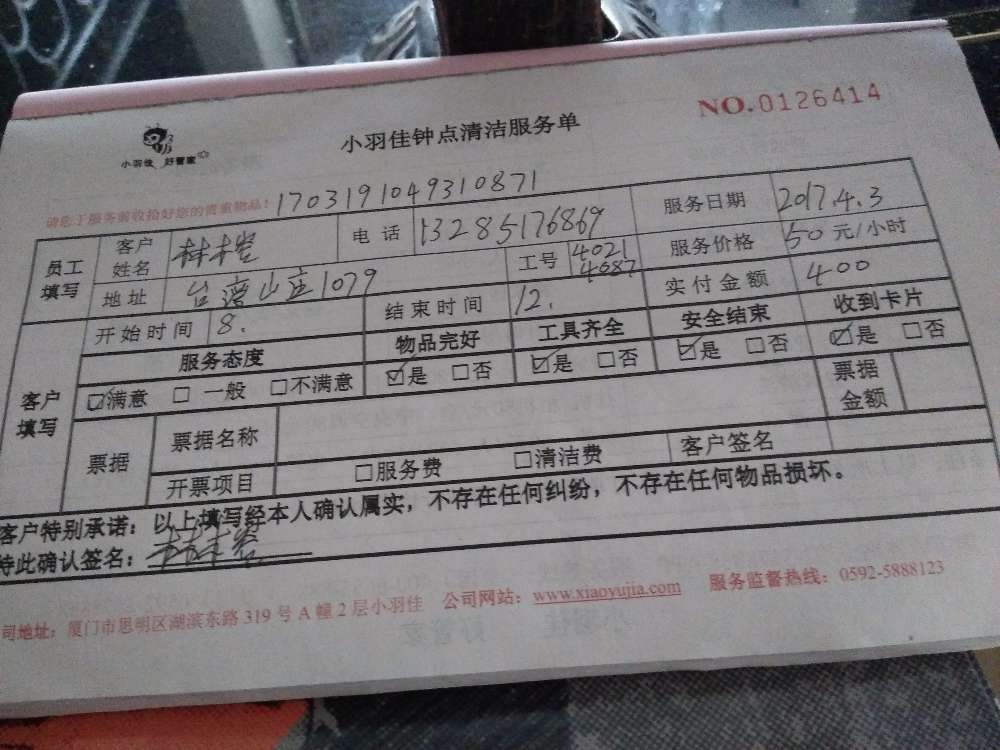 小羽佳 好管家
小羽佳钟点清洁服务单
NO.0126414
请您于服务前收拾好您的贵重物品!
1703191049310871
员工填写 客户姓名 电话 13285176869 服务日期 2017.4.3
地址 台湾山庄1079 工号 4021 4687 服务价格 50元/小时
客户填写 开始时间 8. 结束时间 12. 实付金额 400
服务态度 物品完好 工具齐全 安全结束 收到卡片
☑满意 □一般 □不满意 ☑是 □否 ☑是 □否 ☑是 □否 ☑是 □否
票据 票据名称 票据金额
开票项目 □服务费 □清洁费 客户签名
客户特别承诺：以上填写经本人确认属实，不存在任何纠纷，不存在任何物品损坏。
特此确认签名：
司地址：厦门市思明区湖滨东路319号A幢2层小羽佳 公司网站：www.xiaoyujia.com 服务监督热线：0592-5888123